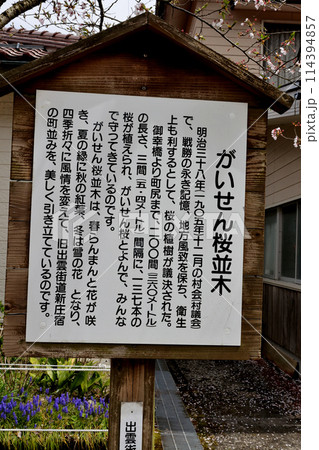 がいせん桜並木
明治三十八年(一九〇五年)十二月の村会(村議会)
で、戦勝の永き記憶、地方風致を保ち、衛生
上も利するとして、桜の植樹が議決された。
御幸橋より町尻まで二〇〇間(三六〇メートル)
の長さ、三間(五・四メートル)間隔に、一三七本の
桜が植えられ、がいせん桜とよんで、みんな
で守ってきているのです。
がいせん桜並木は、春らんまんと花が咲
き、夏の緑に秋の紅葉、冬は雪の花となり、
四季折々に風情を変えて、旧出雲街道新庄宿
の町並みを、美しく引き立てているのです。
出雲街
pixta.jp - 114394857